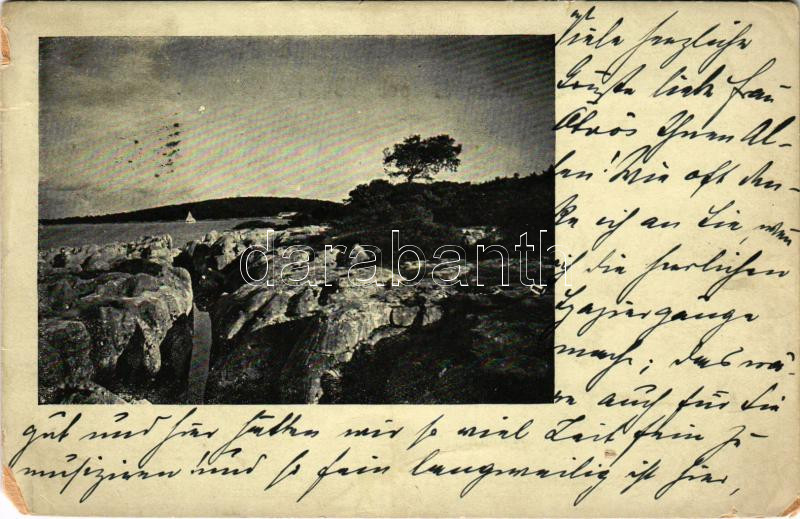 Viele herzliche
Grüße liebe Frau
Ihnen Al-
len! Wie oft den-
ke ich an Sie, wenn
ich die herrlichen
Spaziergänge
mache; das wä-
re auch für Sie
gut und hier hätten wir so viel Zeit fein zu
musiziren! und so fein langweilig ist hier,
darabanth